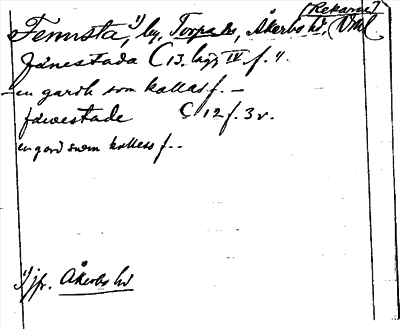 [Rekarne]
Fennsta,¹⁾ by, Torpa sn, Åkerbo hd, Vml
fänestada C 13. lägg IV f. 4.
– en gardh som kallas f. –
fäwestade C 12 f. 3 v.
en gard som kalless f. -
¹⁾ jfr. Åkerbo hd